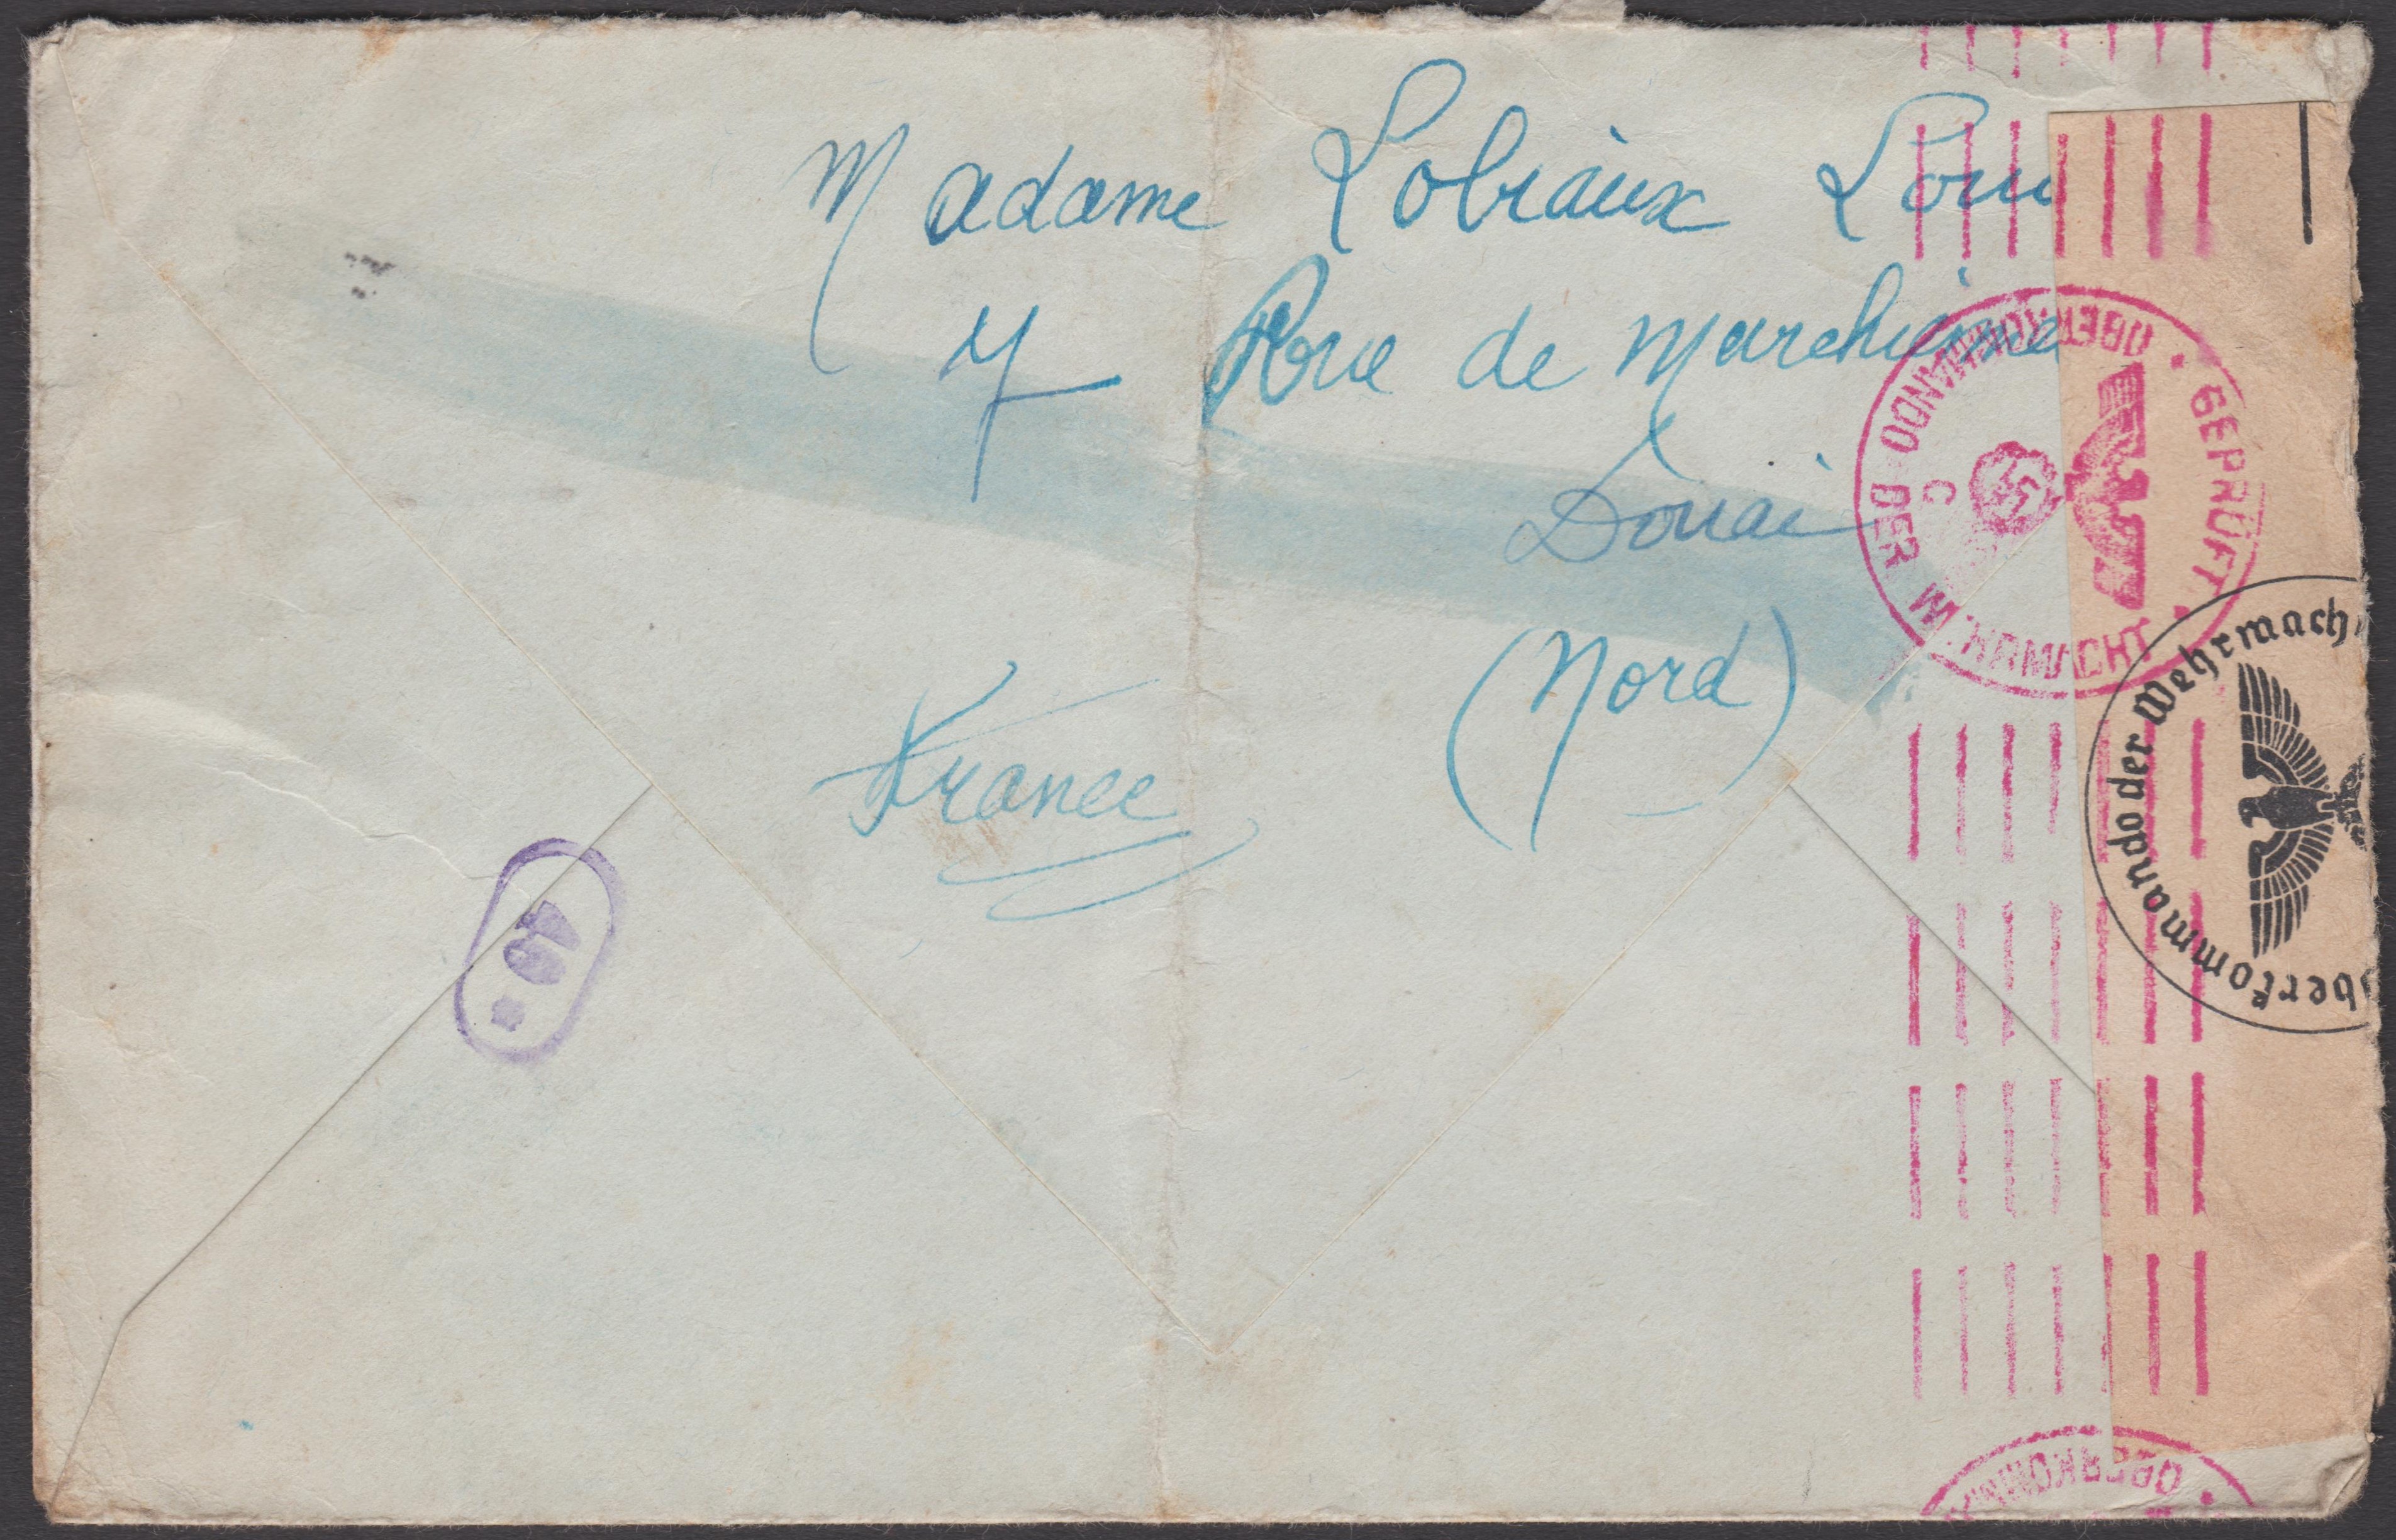 Madame Lobiaux Loui
7 Rue de Marchienne
Douai
(Nord)
France
OBERKOMMANDO DER WEHRMACHT
• GEPRÜFT •
C
Oberkommando der Wehrmacht
OBERKOMM